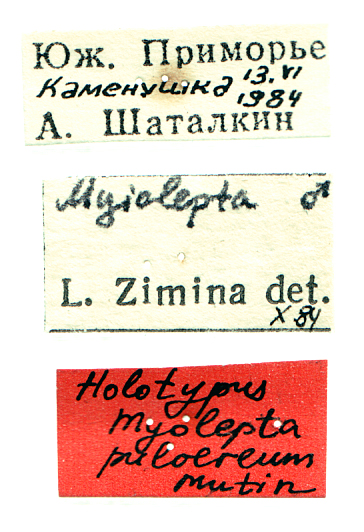 Юж. Приморье
Каменушка 13.VI
1984
А. Шаталкин
Myiolepta ♂
L. Zimina det.
X 84
Holotypus
Myolepta
puloereum
Mutin